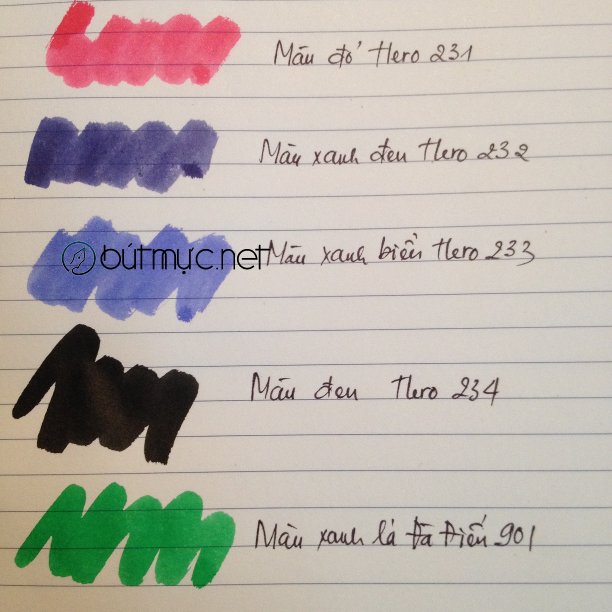 Màu đỏ Hero 231
Màu xanh đen Hero 232
bútmực.net
Màu xanh biển Hero 233
Màu đen Hero 234
Màu xanh lá 901